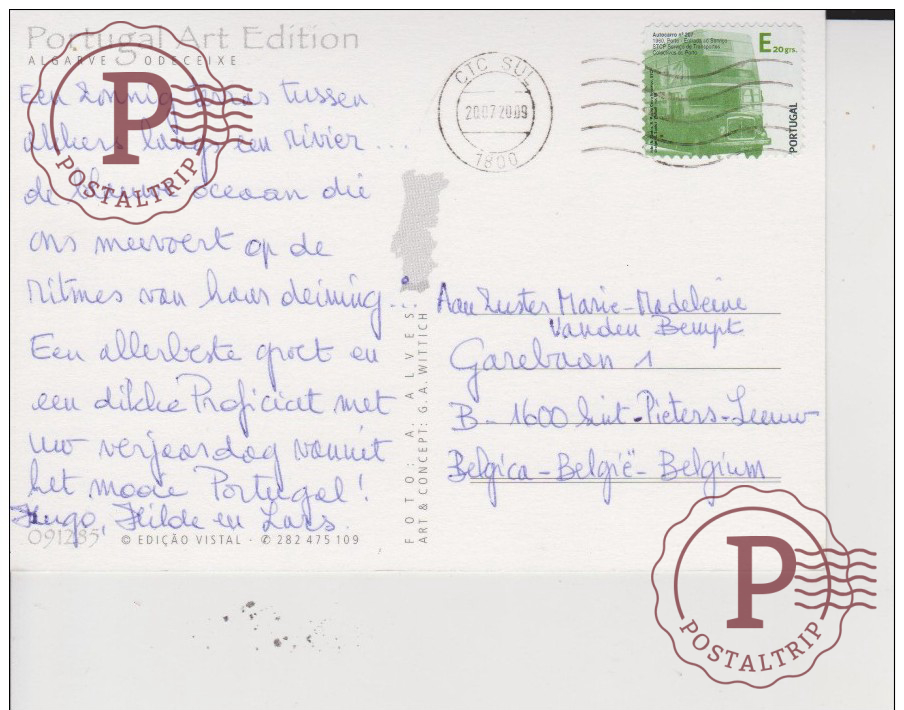 Portugal Art Edition
ALGARVE ODECEIXE
Een zonnig terras tussen
akkers langs een rivier ...
de blauwe oceaan die
ons meevoert op de
ritmes van haar deining ...
Een allerbeste groet en
een dikke Proficiat met
uw verjaardag vanuit
het mooie Portugal!
Hugo, Hilde en Lars.
091285 © EDIÇÃO VISTAL · ✆ 282 475 109
FOTO: A. ALVES
ART & CONCEPT: G.A. WITTICH
CTC SUL
20072009
1800
Autocarro nº 207
1960, Porto - Entrada ao Serviço
STCP Serviço de Transportes
Colectivos do Porto
E 20 grs.
PORTUGAL
Aan Zuster Marie-Madeleine
Vanden Bempt
Garebaan 1
B-1600 Sint-Pieters-Leeuw
Belgica-België-Belgium
P
POSTALTRIP
P
POSTALTRIP